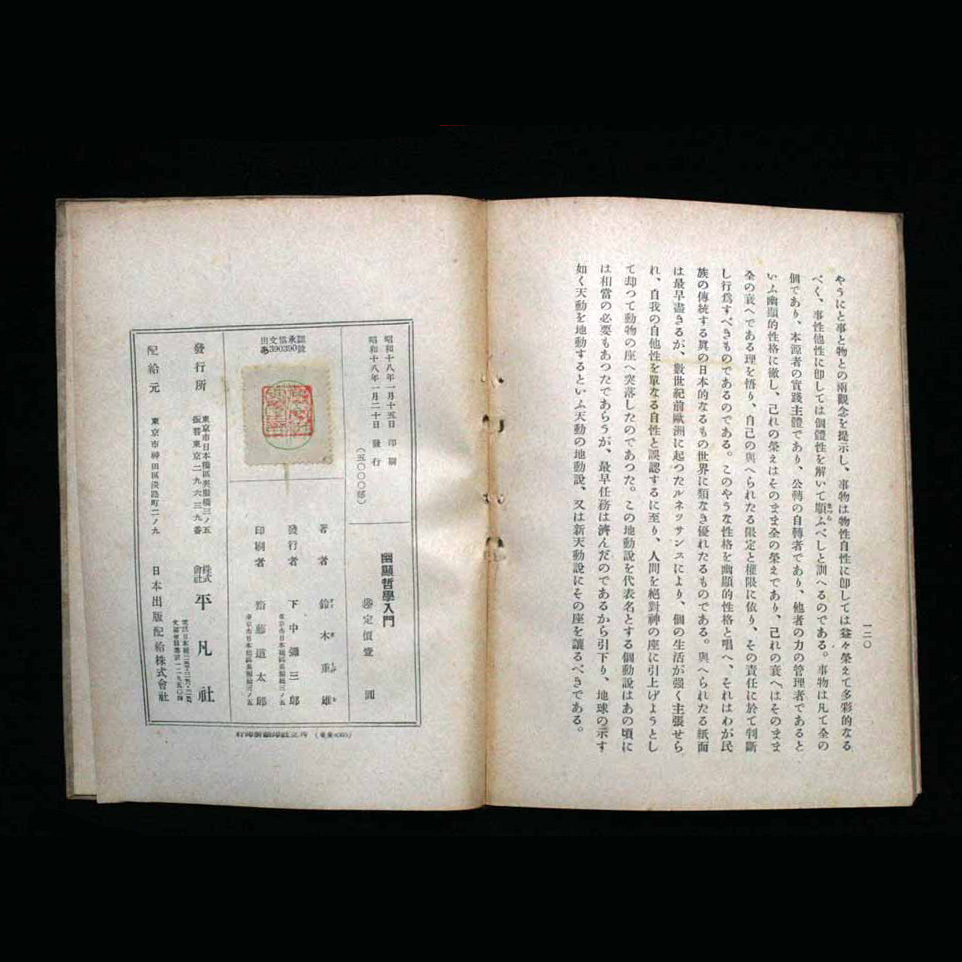 一二〇
やうにと事と物との兩觀念を提示し、事物は物性自性に卽しては益々榮えて多彩的なる
べく、事性他性に卽しては個體性を解いて順ふべしと訓へるのである。事物は凡て全の
個であり、本源者の實踐主體であり、公轉の自轉者であり、他者の力の管理者であると
いふ幽顯的性格に徹し、己れの榮えはそのまま全の榮えであり、己れの衰へはそのまま
全の衰へである理を悟り、自己の與へられたる限定と權限に依り、その責任に於て判斷
し行爲すべきものであるのである。このやうな性格を幽顯的性格と唱へ、それはわが民
族の傳統する眞の日本的なるもの世界に類なき優れたるものである。與へられたる紙面
は最早盡きるが、數世紀前歐洲に起つたルネッサンスにより、個の生活が强く主張せら
れ、自我の自他性を單なる自性と誤認するに至り、人間を絕對神の座に引上げようとし
て却つて動物の座へ突落したのであつた。この地動說を代表名とする個動說はあの頃に
は相當の必要もあつたであらうが、最早任務は濟んだのであるから引下り、地球の示す
如く天動を地動するといふ天動の地動說、又は新天動說にその座を讓るべきである。
昭和十八年一月十五日 印刷
昭和十八年一月二十日 發行
(五〇〇〇部)
幽顯哲學入門
定價壹圓
著者 鈴木重雄
發行者 下中彌三郎
東京市日本橋區吳服橋三ノ五
印刷者 齋藤道太郎
東京市日本橋區吳服橋三ノ五
發行所
東京市日本橋區吳服橋三ノ五
振替東京二九六三九番
株式會社 平凡社
配給元 東京市神田區淡路町二ノ九 日本出版配給株式會社